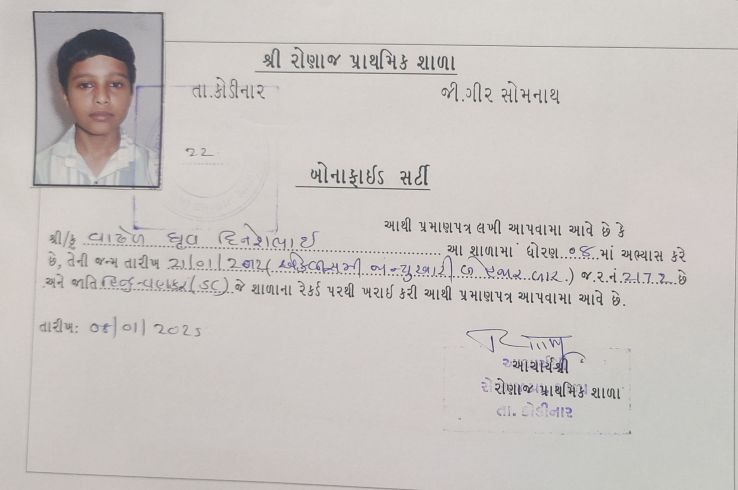 શ્રી રોણાજ પ્રાથમિક શાળા
તા.કોડીનાર જી.ગીર સોમનાથ
22
બોનાફાઈડ સર્ટી
આથી પ્રમાણપત્ર લખી આપવામા આવે છે કે
શ્રી/કુ વાઢેળ ધ્રુવ દિનેશભાઈ આ શાળામાં ધોરણ ૦૪ માં અભ્યાસ કરે
છે, તેની જન્મ તારીખ 21/01/2015 ( એકવીસમી જાન્યુઆરી બે હજાર ) જ.ર.નં 2172 છે
અને જાતિ હિન્દુ વણકર (SC) જે શાળાના રેકર્ડ પરથી ખરાઈ કરી આથી પ્રમાણપત્ર આપવામા આવે છે.
તારીખ: 08/01/2025
આચાર્યશ્રી
રોણાજ પ્રાથમિક શાળા
તા. કોડીનાર